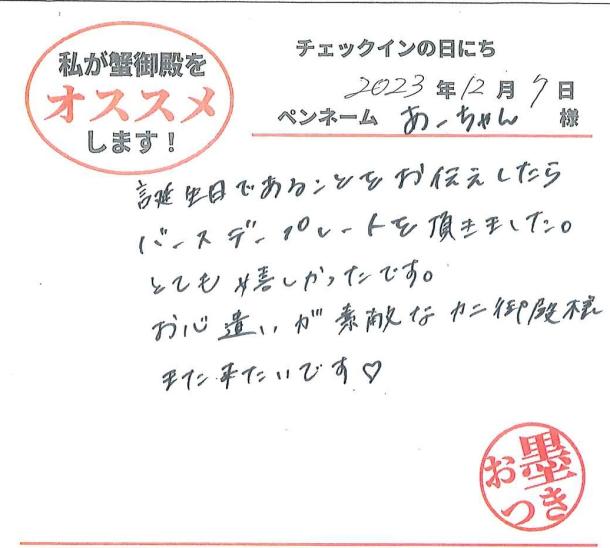 私が蟹御殿を
オススメ
します!
チェックインの日にち
2023年12月9日
ペンネーム あーちゃん 様
誕生日であることをお伝えしたら
バースデープレートを頂きました。
とても嬉しかったです。
お心遣いが素敵なカニ御殿様
また来たいです♡
お墨
つき